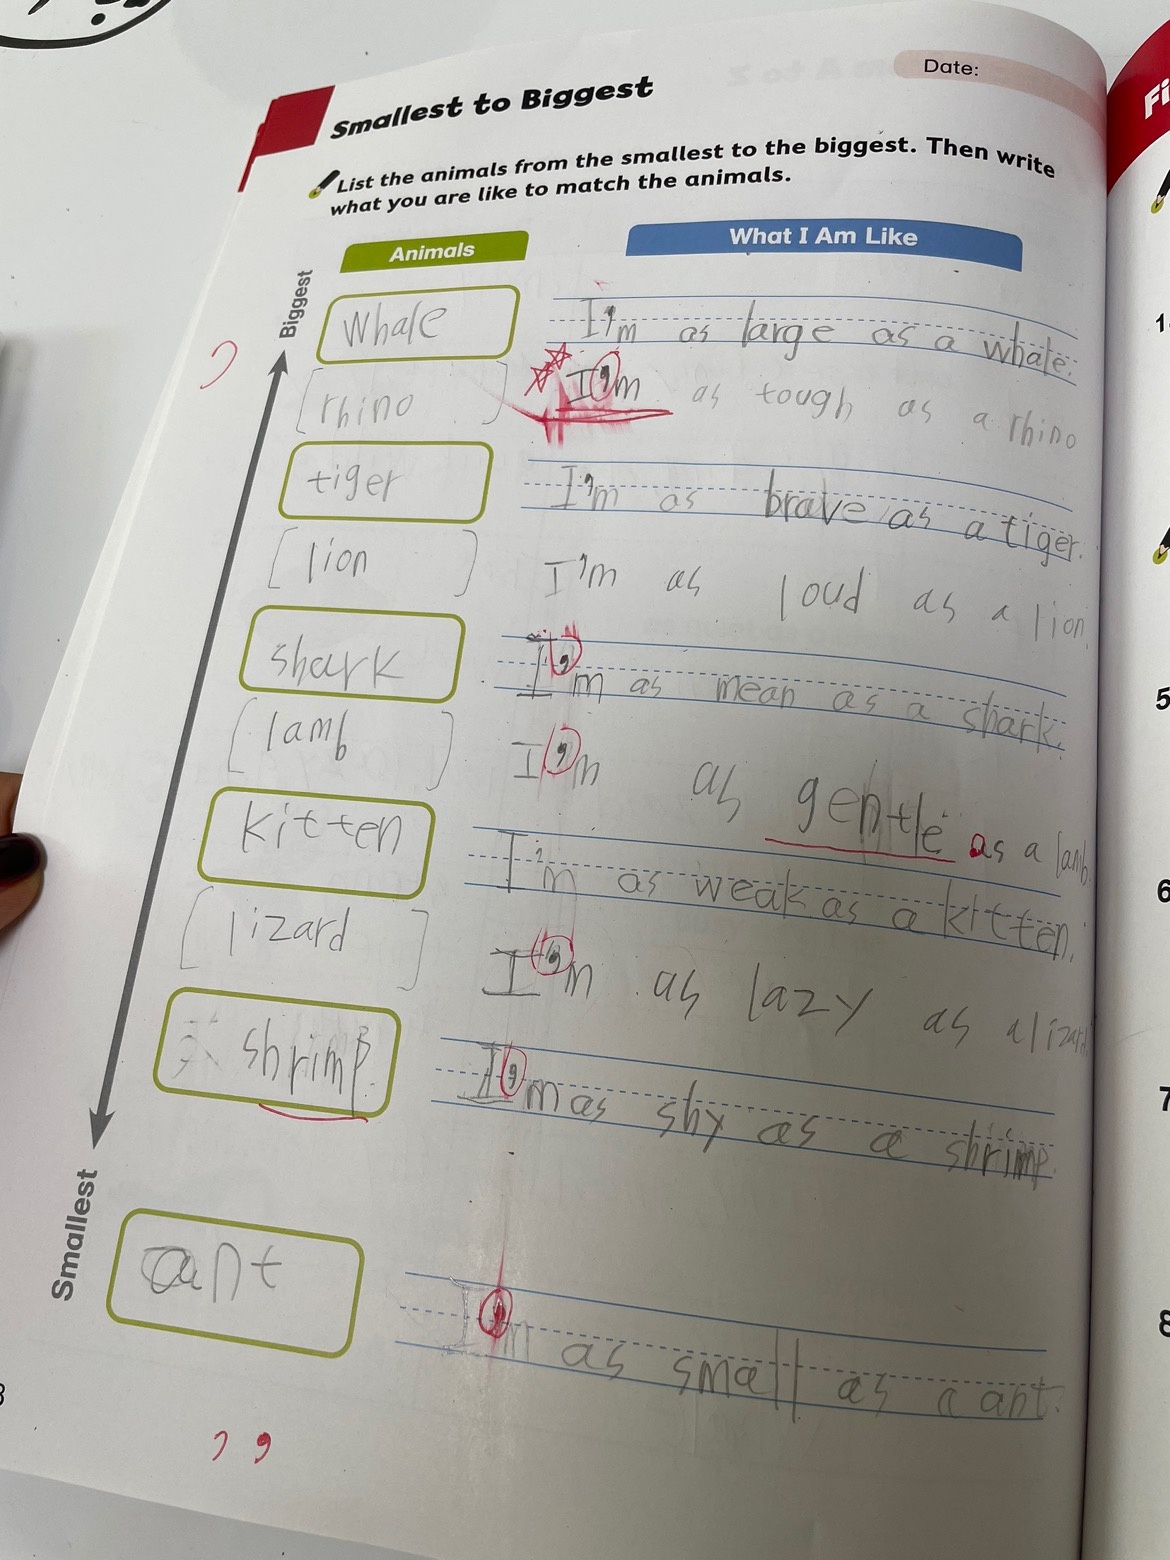 Date:
Smallest to Biggest
List the animals from the smallest to the biggest. Then write
what you are like to match the animals.
Animals
What I Am Like
Biggest
whale
I'm as large as a whale.
rhino
I'm as tough as a rhino
tiger
I'm as brave as a tiger.
lion
I'm as loud as a lion
shark
I'm as mean as a shark.
lamb
I'm as gentle as a lamb
kitten
I'm as weak as a kitten.
lizard
I'm as lazy as a lizard
shrimp.
I'm as shy as a shrimp.
Smallest
ant
I'm as small as a ant.
Fi
1
5
6
7
8